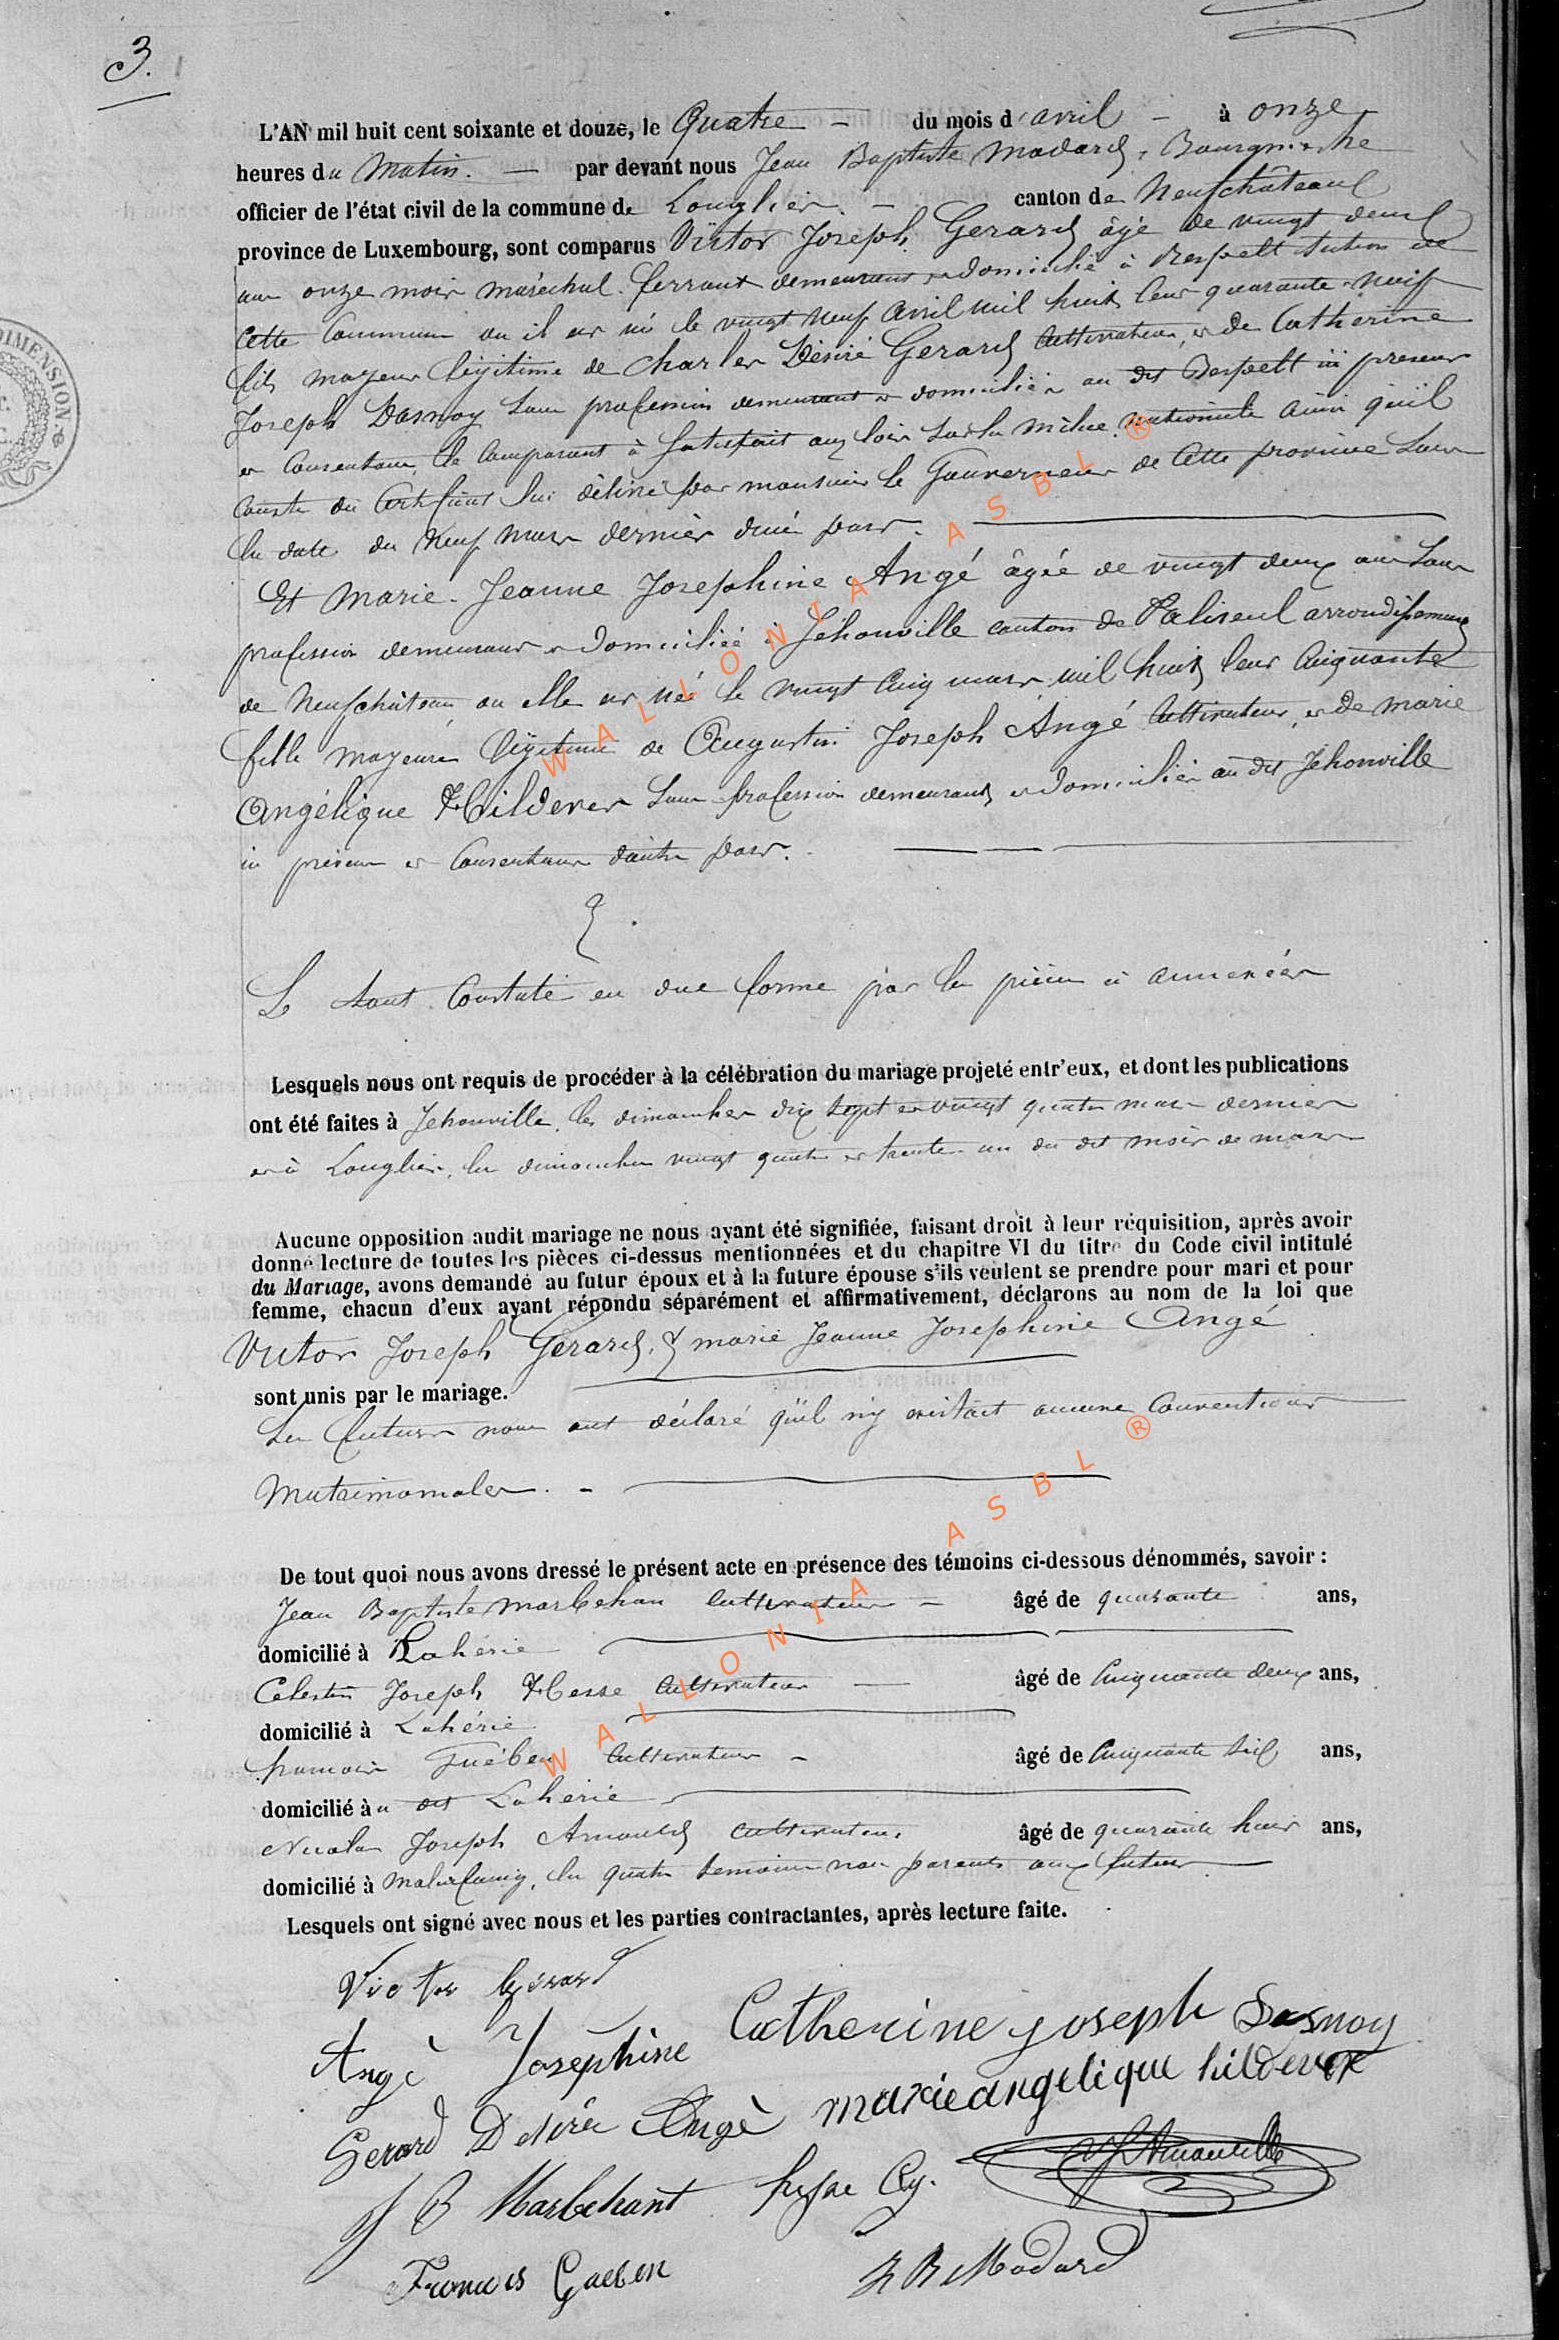 3.
L'AN mil huit cent soixante et douze, le Quatre du mois d'avril à onze
heures du Matin. par devant nous Jean Baptiste Madard, Bourgmestre
officier de l'état civil de la commune de Longlier. canton de Neufchâteau
province de Luxembourg, sont comparus Victor Joseph Gerard âgé de vingt deux
ans onze mois maréchal ferrant demeurant et domicilié à Respelt section de
cette Commune ou il est né le vingt neuf avril mil huit cent quarante neuf
fils majeur légitime de Charles Désiré Gerard Cultivateur, et de Catherine
Joseph Dasnoy sans profession demeurant et domiciliés au dit Respelt ici présens
et consentans, le comparant à satisfait aux lois sur la milice nationale ainsi qu'il
conste du certificat lui délivré par monsieur le Gouverneur de cette province sous
la date du neuf mars dernier d'une part.
Et Marie Jeanne Josephine Angé âgée de vingt deux ans sans
profession demeurant et domiciliée à Jéhonville canton de Paliseul arrondissement
de Neufchâteau ou elle est née le vingt cinq mars mil huit cent cinquante
fille majeure légitime de Augustin Joseph Angé Cultivateur, et de marie
Angélique Hilderer sans profession demeurant et domiciliés au dit Jéhonville
ici présens et consentans d'autre part.
Le tout constaté en due forme par les pièces ci annexées
Lesquels nous ont requis de procéder à la célébration du mariage projeté entr'eux, et dont les publications
ont été faites à Jehonville, les dimanches dix sept et vingt quatre mars dernier
et à Longlier, les dimanches vingt quatre et trente un du dit mois de mars
Aucune opposition audit mariage ne nous ayant été signifiée, faisant droit à leur réquisition, après avoir
donné lecture de toutes les pièces ci-dessus mentionnées et du chapitre VI du titre du Code civil intitulé
du Mariage, avons demandé au futur époux et à la future épouse s'ils veulent se prendre pour mari et pour
femme, chacun d'eux ayant répondu séparément et affirmativement, déclarons au nom de la loi que
Victor Joseph Gerard, & marie Jeanne Josephine Angé
sont unis par le mariage.
Les futurs nous ont déclaré qu'il n'y existait aucune Conventions
Matrimoniales.
De tout quoi nous avons dressé le présent acte en présence des témoins ci-dessous dénommés, savoir :
Jean Baptiste Marbehan Cultivateur âgé de quarante ans,
domicilié à Lahérie
Celestin Joseph Hesse Cultivateur âgé de Cinquante deux ans,
domicilié à Lahérie
francois Guében Cultivateur âgé de Cinquante six ans,
domicilié au dit Lahérie
Nicolas Joseph Arnould Cultivateur âgé de quarante huit ans,
domicilié à les quatre temoins non parents aux futurs
Lesquels ont signé avec nous et les parties contractantes, après lecture faite.
Victor Gérard
Angé Josephine Catherine joseph Dasnoy
Gerard Désirée Angé marie angelique hilderer
J B Marbehant hesse Cj. NJ Arnould
Francois Gueben J B Madard
DIMENSION.
WALLONIA ASBL ®
WALLONIA ASBL ®